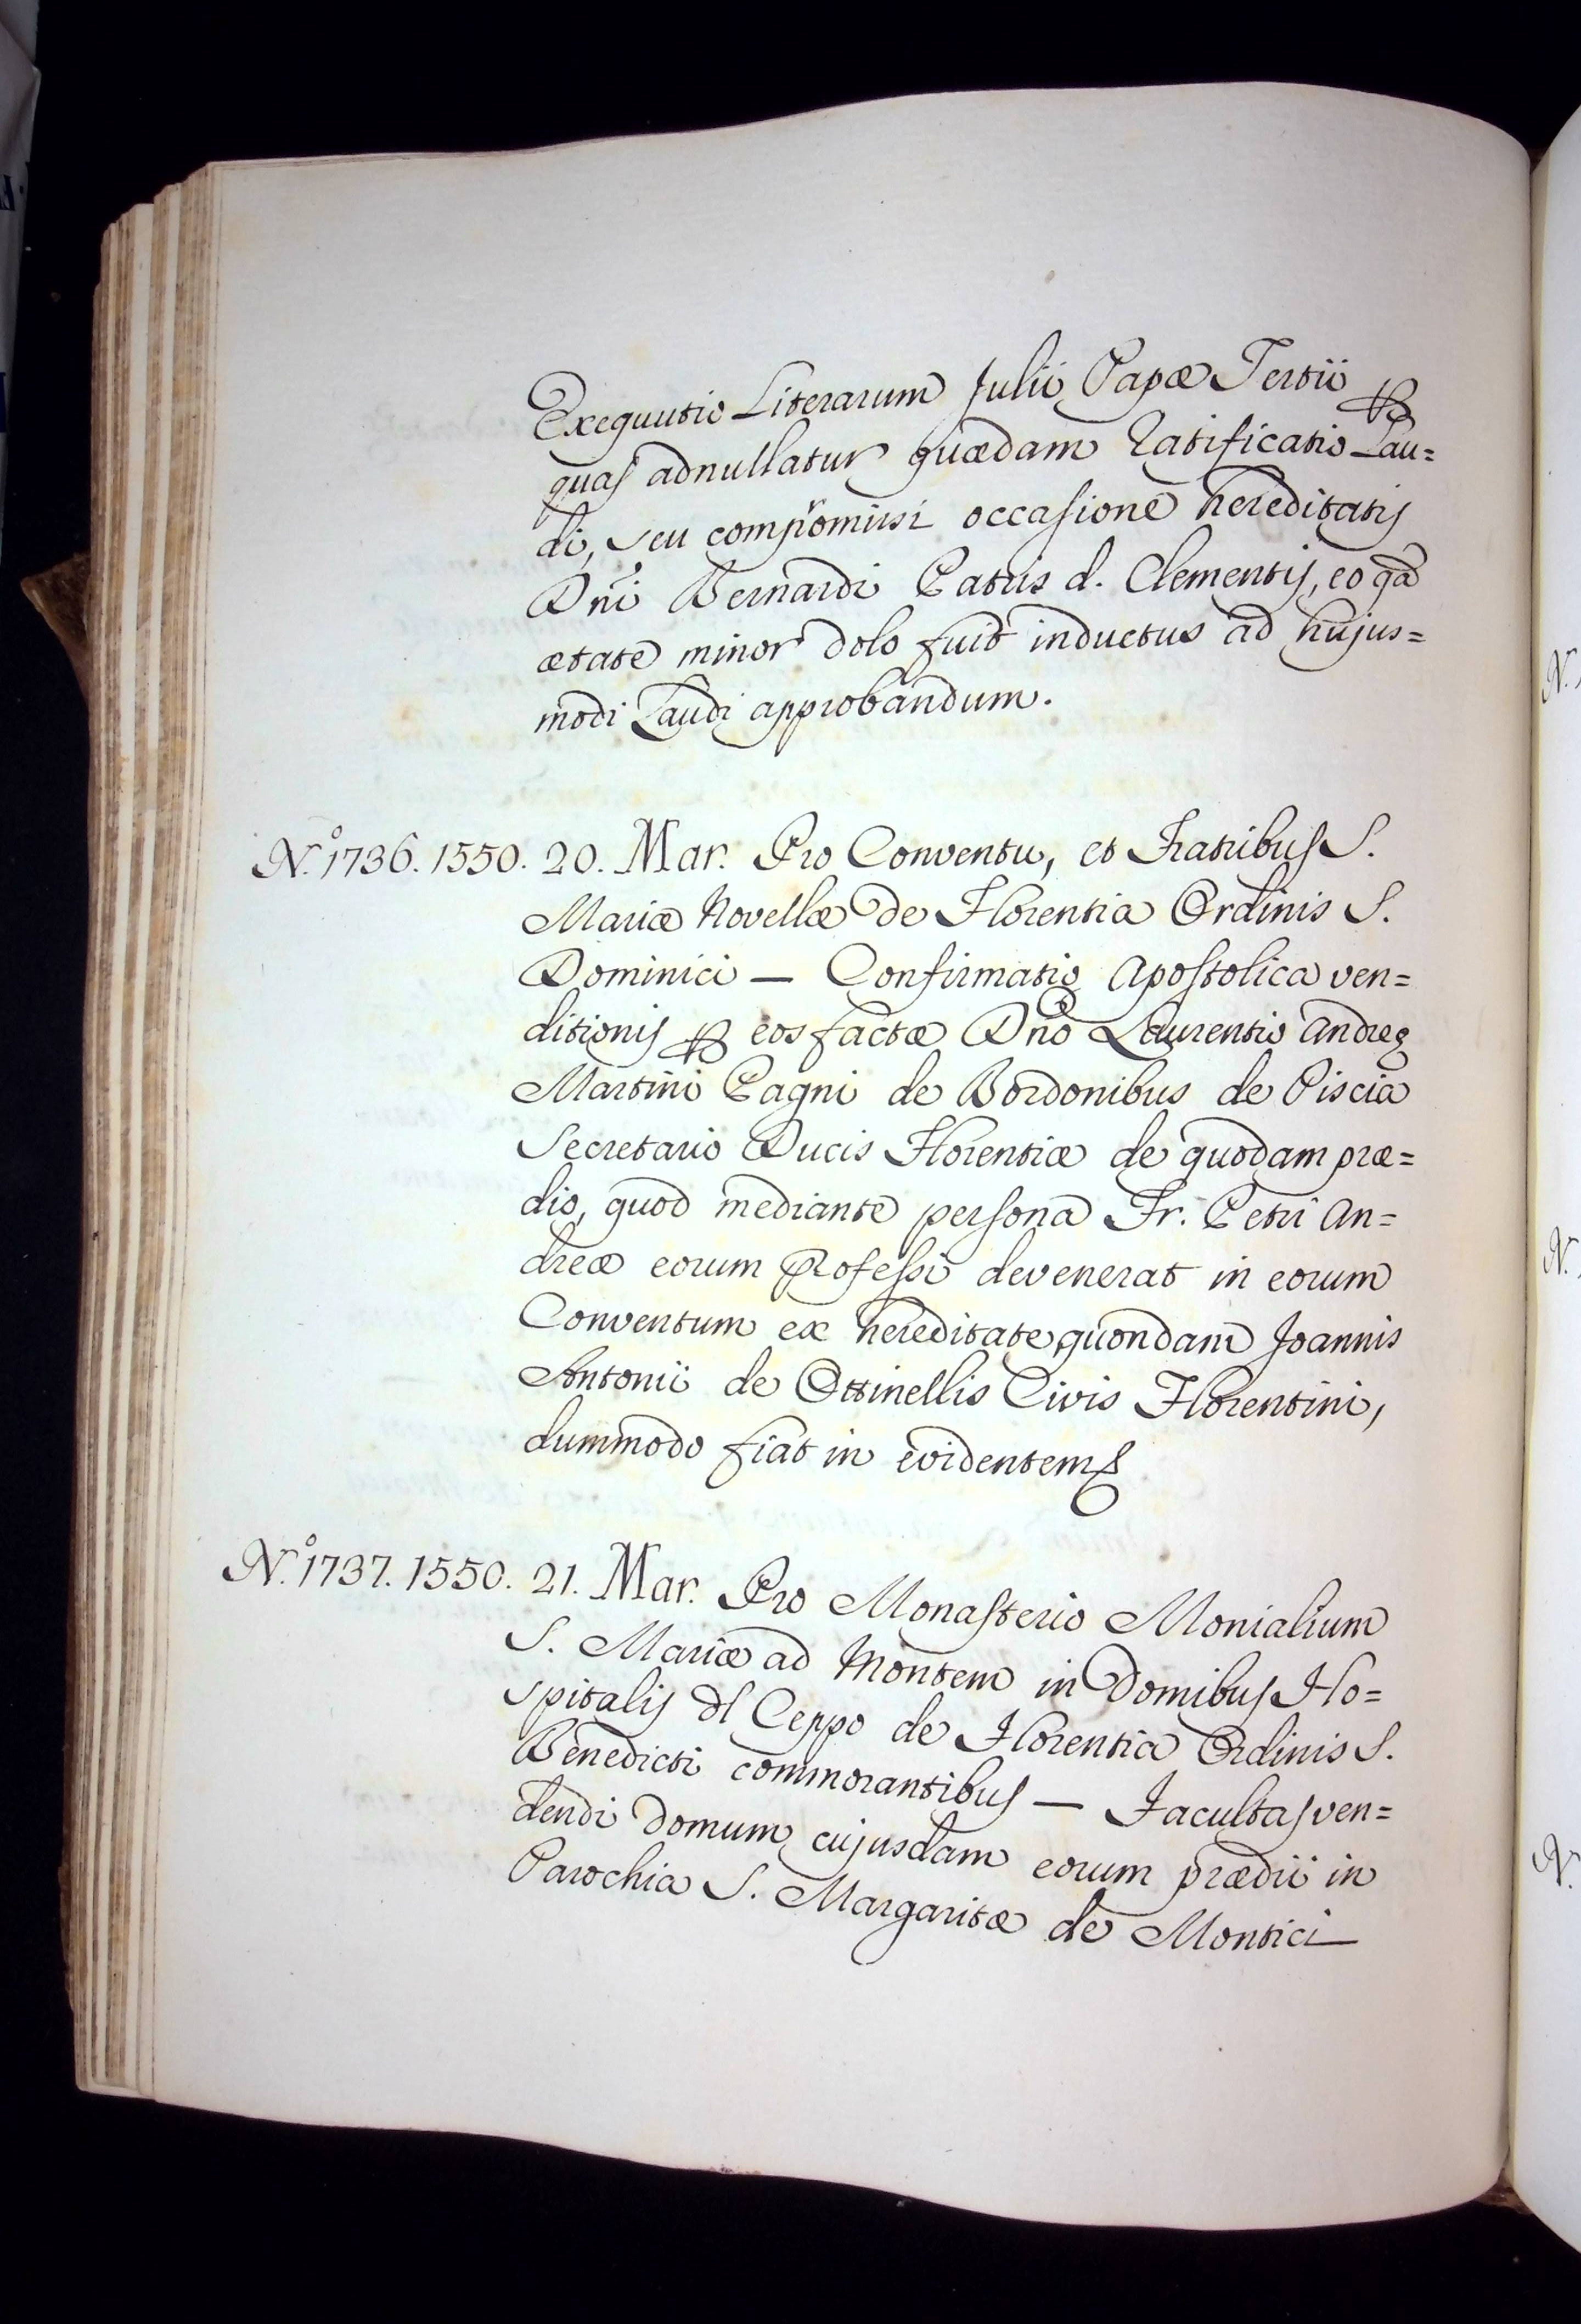 Exequutio Literarum Julii Papæ Tertii ꝑ
quas adnullatur quædam Ratificatio Lau=
di, seu compromissi occasione hereditatis
Dn̄i Bernardi Patris d. Clementis, eo qđ
ætate minor dolo fuit inductus ad hujus=
modi Laudi approbandum.
N.º 1736. 1550. 20. Mar. Pro Conventu, et Fratribus S.
Mariæ Novellæ de Florentia Ordinis S.
Dominici — Confirmatio Apostolica ven=
ditionis ꝑ eos factæ Dn̄o Laurentio Andreę
Martini Pagni de Bordonibus de Piscia
Secretario Ducis Florentiæ de quodam præ=
dio, quod mediante persona Fr. Petri An=
dreæ eorum Professi devenerat in eorum
Conventum ex hereditate quondam Joannis
Antonii de Ottinellis Civis Florentini,
dummodo fiat in evidentem &
N.º 1737. 1550. 21. Mar. Pro Monasterio Monialium
S. Mariæ ad Montem in Domibus Ho=
spitalis dl Ceppo de Florentia Ordinis S.
Benedicti commorantibus — Facultas ven=
dendi domum cujusdam eorum prædii in
Parochia S. Margaritæ de Montici
N.
N.
N.